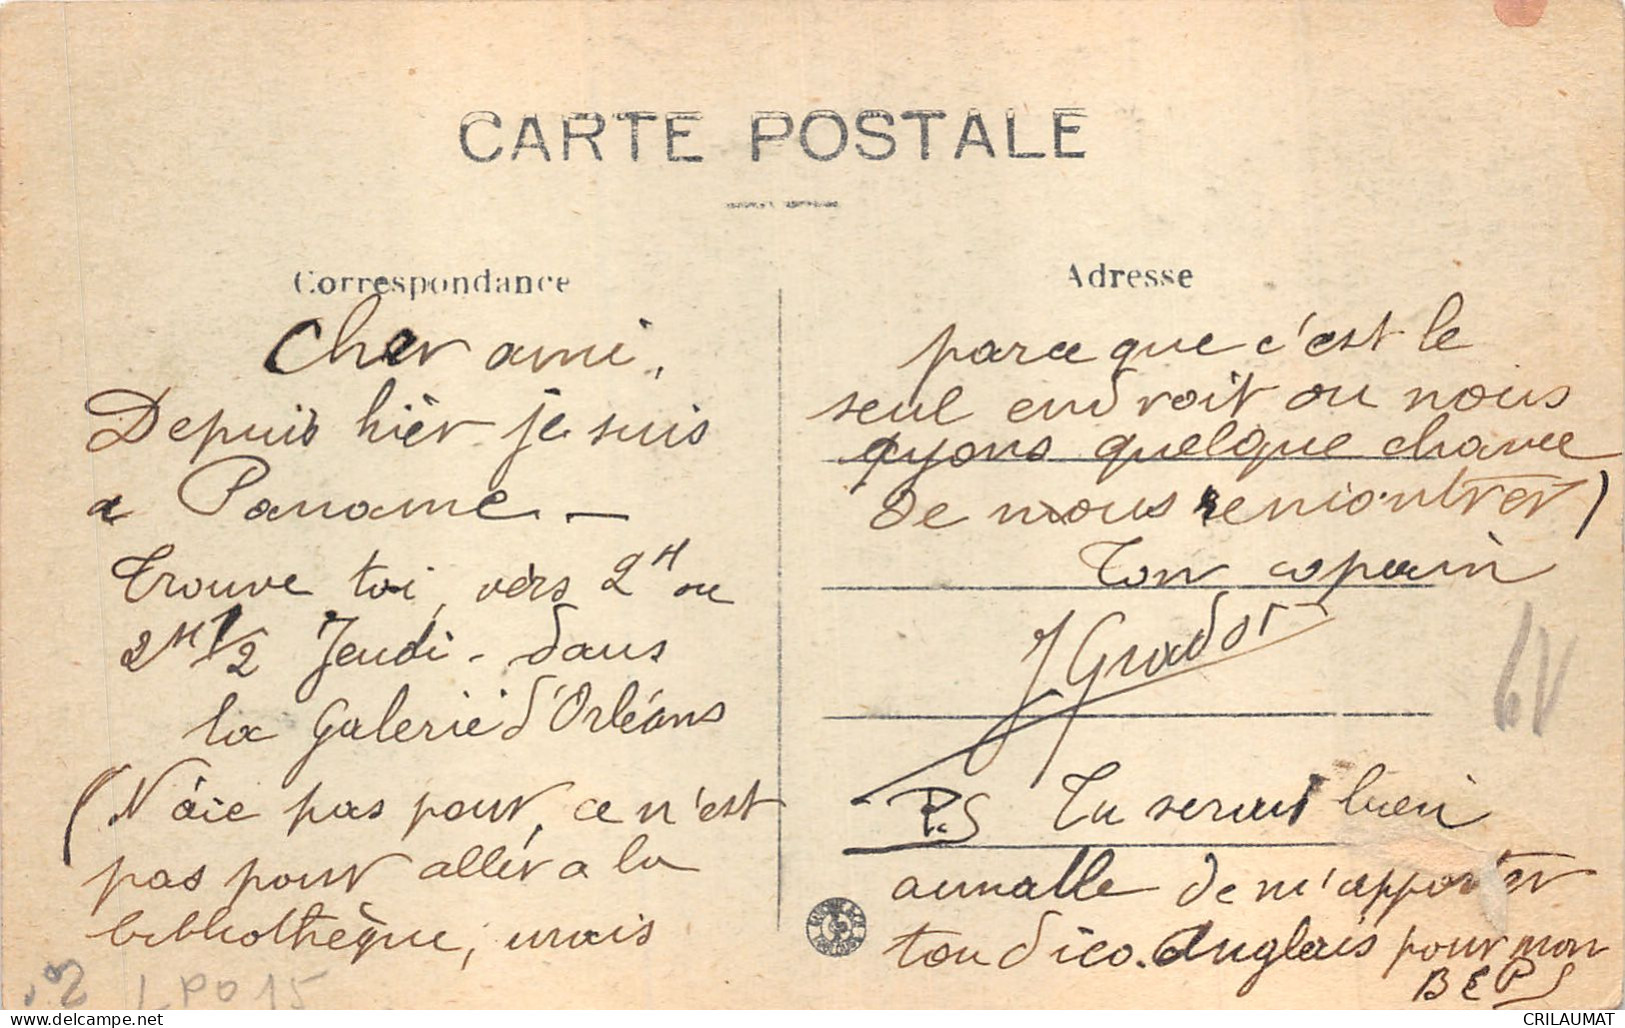 CARTE POSTALE
Correspondance
Cher ami,
Depuis hièr je suis
a Paname. —
Trouve toi, vèrs 2H ou
2H 1/2 Jeudi - dans
la Galerie d'Orléans
(N'aie pas peur, ce n'est
pas pour allér a la
bibliothèque, mais
Adresse
parce que c'est le
seul endroit ou nous
ayons quelque chance
de nous rencontrer)
Ton copain
J Grador
P.S Tu serais bien
aimable de m'apporter
ton dico. Anglais pour mon
B E P S
6V
LPO 15
CRILAUMAT